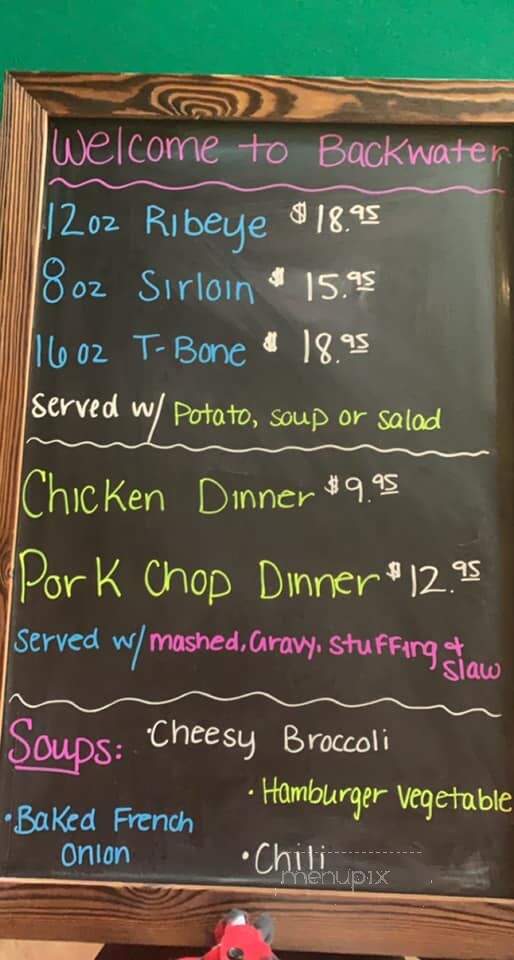 Welcome to Backwater
12oz Ribeye $18.95
8oz Sirloin $15.95
16oz T-Bone $18.95
served w/ Potato, soup or salad
Chicken Dinner $9.95
Pork Chop Dinner $12.95
served w/ mashed, Gravy, stuffing + slaw
Soups: ·Cheesy Broccoli
·Hamburger vegetable
·Baked French
Onion
·Chili
menupix